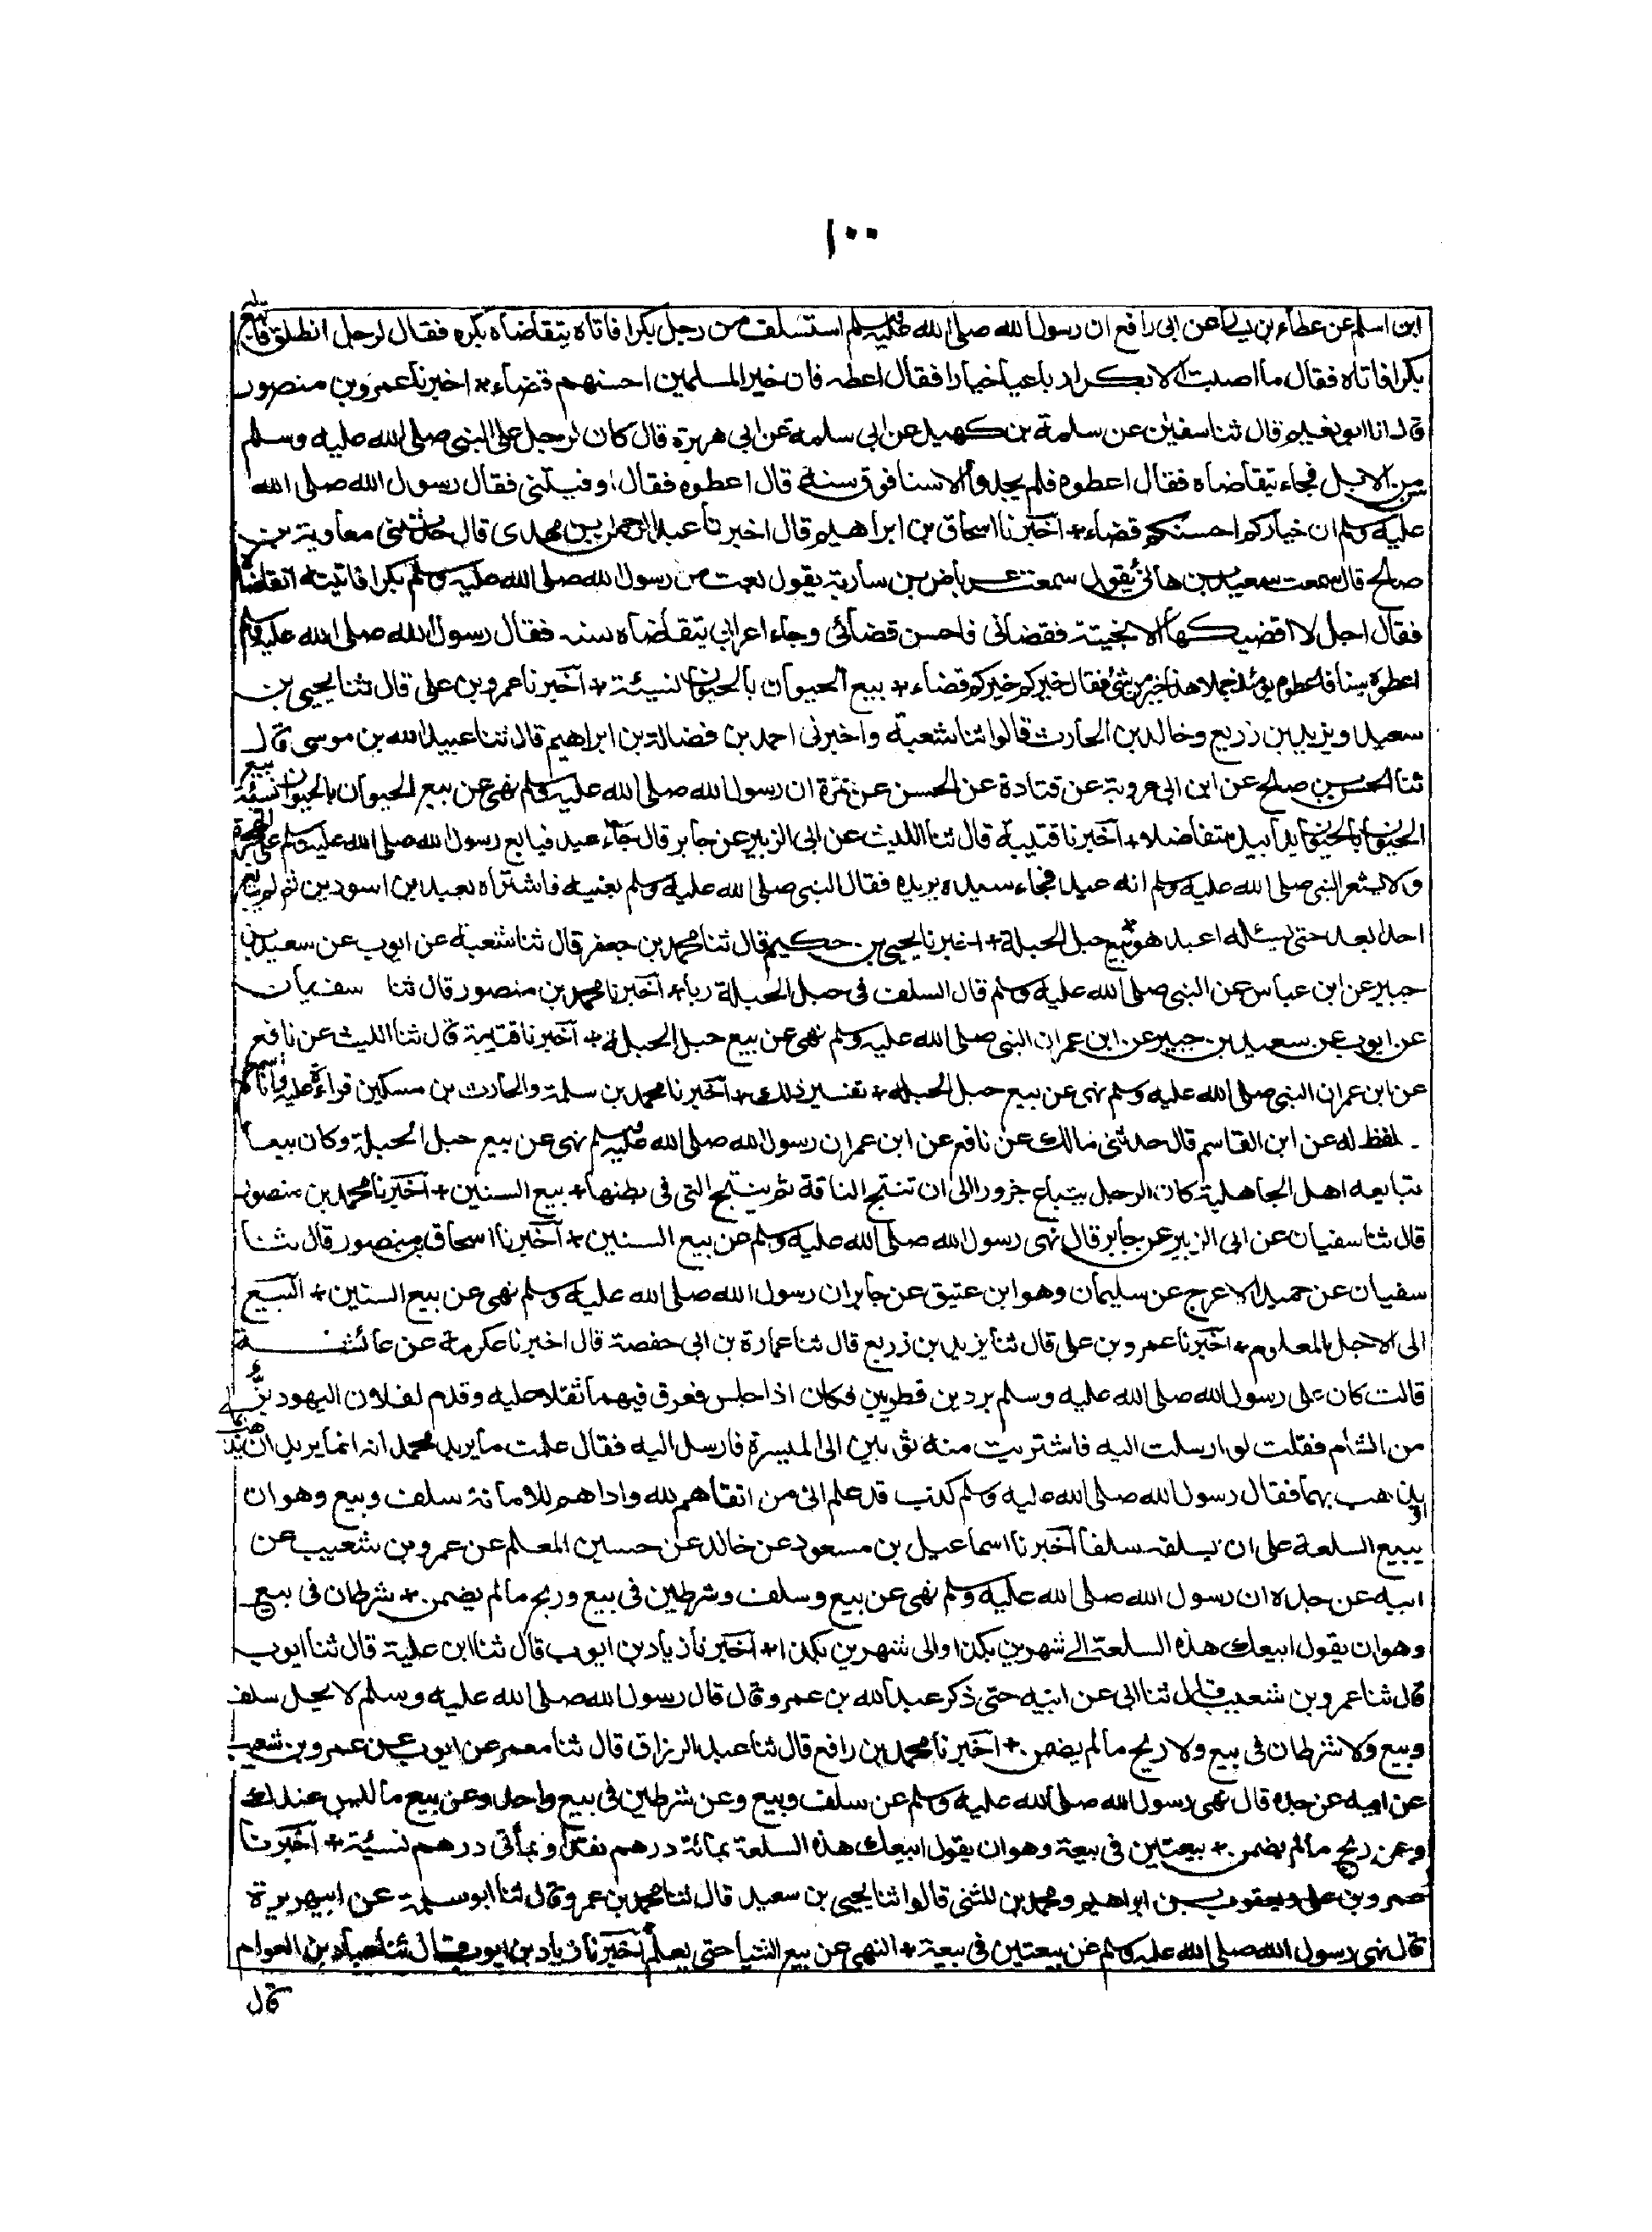 ١٠٠
ابن اسلم عن عطاء بن يسار عن ابى رافع ان رسول الله صلى الله عليه وسلم استسلف من رجل بكرا فاتاه يتقاضاه بكره فقال لرجل انطلق فابتع
بكرا فاتاه فقال ما اصبت الا بكرا رباعيا خيارا فقال اعطه فان خير المسلمين احسنهم قضاء + اخبرنا عمرو بن منصور
قال انا ابو نعيم قال ثنا سفيٰن عن سلمة بن كهيل عن ابى سلمة عن ابى هريرة قال كان لرجل على النبى صلى الله عليه وسلم
سن من الابل فجاء يتقاضاه فقال اعطوه فلم يجدوا الا سنا فوق سنه قال اعطوه فقال اوفيتنى فقال رسول الله صلى الله
عليه وسلم ان خياركم احسنكم قضاء + اخبرنا اسحاق بن ابراهيم قال اخبرنا عبد الرحمن بن مهدى قال حدثنى معاوية بن
صالح قال سمعت سعيد بن هانئ يقول سمعت عرباض بن سارية يقول بعت من رسول الله صلى الله عليه وسلم بكرا فاتيته اتقاضاه
فقال اجل لا اقضيكها الا نجيتة فقضانى فاحسن قضائى وجاء اعرابى يتقاضاه سنه فقال رسول الله صلى الله عليه وسلم
اعطوه سنا فاعطوه يومئذ جملا هذا خير من سنى فقال خيركم خيركم قضاء + بيع الحيوان بالحيوان نسيئة + اخبرنا عمرو بن على قال ثنا يحيى بن
سعيد ويزيد بن زريع وخالد بن الحارث قالوا ثنا شعبة واخبرنى احمد بن فضالة بن ابراهيم قال ثنا عبيد الله بن موسى قال
ثنا الحسن بن صالح عن ابن ابى عروبة عن قتادة عن الحسن عن سمرة ان رسول الله صلى الله عليه وسلم نهى عن بيع الحيوان بالحيوان نسئة بيع
الحيوان بالحيوان يدا بيد متفاضلا + اخبرنا قتيبة قال ثنا الليث عن ابى الزبير عن جابر قال جاء عبد فبايع رسول الله صلى الله عليه وسلم على الهجرة
ولا يشعر النبى صلى الله عليه وسلم انه عبد فجاء سيده يريده فقال النبى صلى الله عليه وسلم بعنيه فاشتراه بعبدين اسودين ثم لم يبايع
احدا بعد حتى يسئله اعبد هو + بيع حبل الحبلة + اخبرنا يحيى بن حكيم قال ثنا محمد بن جعفر قال ثنا شعبة عن ايوب عن سعيد بن
جبير عن ابن عباس عن النبى صلى الله عليه وسلم قال السلف فى حبل الحبلة ربا + اخبرنا محمد بن منصور قال ثنا سفيان
عن ايوب عن سعيد بن جبير عن ابن عمر ان النبى صلى الله عليه وسلم نهى عن بيع حبل الحبلة + اخبرنا قتيبة قال ثنا الليث عن نافع
عن ابن عمر ان النبى صلى الله عليه وسلم نهى عن بيع حبل الحبلة + تفسير ذلك + اخبرنا محمد بن سلمة والحارث بن مسكين قراءة عليه وانا اسمع
لفظ له عن ابن القاسم قال حدثنى مالك عن نافع عن ابن عمر ان رسول الله صلى الله عليه وسلم نهى عن بيع حبل الحبلة وكان بيعا
يتبايعه اهل الجاهلية كان الرجل يبتاع جزورا الى ان تنتج الناقة ثم ينتج التى فى بطنها + بيع السنين + اخبرنا محمد بن منصور
قال ثنا سفيان عن ابى الزبير عن جابر قال نهى رسول الله صلى الله عليه وسلم عن بيع السنين + اخبرنا اسحاق بن منصور قال ثنا
سفيان عن حميد الاعرج عن سليمان وهو ابن عتيق عن جابر ان رسول الله صلى الله عليه وسلم نهى عن بيع السنين + البيع
الى الاجل المعلوم + اخبرنا عمرو بن على قال ثنا يزيد بن زريع قال ثنا عمارة بن ابى حفصة قال اخبرنا عكرمة عن عائشة
قالت كان على رسول الله صلى الله عليه وسلم بردين قطريين فكان اذا جلس فعرق فيهما ثقلا عليه وقدم لفلان اليهودى بز
من الشام فقلت لو ارسلت اليه فاشتريت منه ثوبين الى الميسرة فارسل اليه فقال علمت ما يريد محمد انه انما يريد ان يذهب بمالى
او يذهب بهما فقال رسول الله صلى الله عليه وسلم كذب قد علم انى من اتقاهم لله واداهم للامانة سلف وبيع وهو ان
يبيع السلعة على ان يسلفه سلفا اخبرنا اسماعيل بن مسعود عن خالد عن حسين المعلم عن عمرو بن شعيب عن
ابيه عن جده ان رسول الله صلى الله عليه وسلم نهى عن بيع وسلف وشرطين فى بيع وربح ما لم يضمن + شرطان فى بيع
وهو ان يقول ابيعك هذه السلعة الى شهرين بكذا والى شهرين بكذا + اخبرنا زياد بن ايوب قال ثنا ابن علية قال ثنا ايوب
قال ثنا عمرو بن شعيب قال ثنا ابى عن ابيه حتى ذكر عبد الله بن عمرو قال قال رسول الله صلى الله عليه وسلم لا يحل سلف
وبيع ولا شرطان فى بيع ولا ربح ما لم يضمن + اخبرنا محمد بن رافع قال ثنا عبد الرزاق قال ثنا معمر عن ايوب عن عمرو بن شعيب
عن ابيه عن جده قال نهى رسول الله صلى الله عليه وسلم عن سلف وبيع وعن شرطين فى بيع واحد وعن بيع ما ليس عندك
وعن ربح ما لم يضمن + بيعتين فى بيعة وهو ان يقول ابيعك هذه السلعة بمائة درهم نقدا وبمأتى درهم نسيئة + اخبرنا
عمرو بن على ويعقوب بن ابراهيم ومحمد بن المثنى قالوا ثنا يحيى بن سعيد قال ثنا محمد بن عمرو قال ثنا ابو سلمة عن ابى هريرة
قال نهى رسول الله صلى الله عليه وسلم عن بيعتين فى بيعة + النهى عن بيع الثنيا حتى يعلم اخبرنا زياد بن ايوب قال ثنا عباد بن العوام
قال